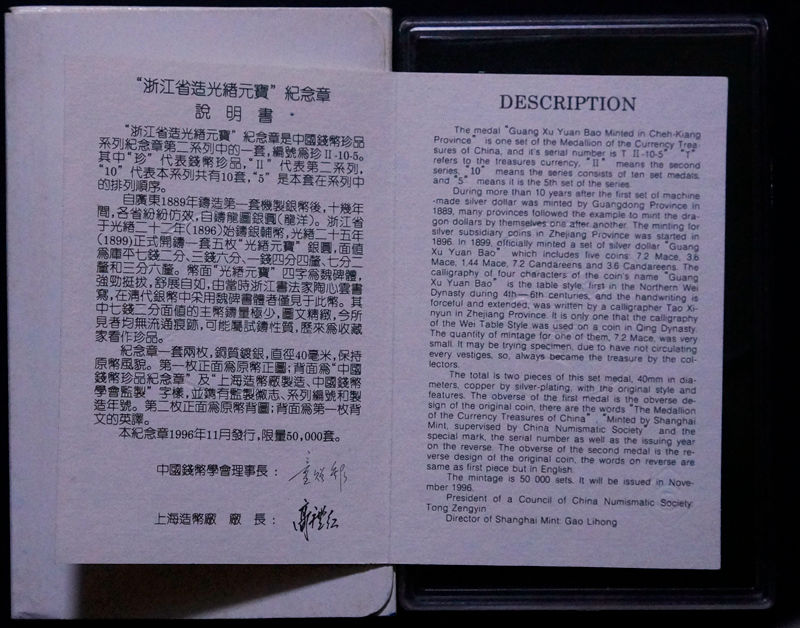 “浙江省造光緒元寶”紀念章
說明書
“浙江省造光緒元寶”紀念章是中國錢幣珍品
系列紀念章第二系列中的一套，編號為珍Ⅱ-10-5。
其中“珍”代表錢幣珍品，“Ⅱ”代表第二系列，
“10”代表本系列共有10套，“5”是本套在系列中
的排列順序。
自廣東1889年鑄造第一套機製銀幣後，十幾年
間，各省紛紛仿效，自鑄龍圖銀圓（龍洋）。浙江省
于光緒二十二年（1896）始鑄銀輔幣，光緒二十五年
（1899）正式開鑄一套五枚“光緒元寶”銀圓，面值
為庫平七錢二分、三錢六分、一錢四分四釐、七分二
釐和三分六釐。幣面“光緒元寶”四字為魏碑體，
強勁挺拔，舒展自如，由當時浙江書法家陶心雲書
寫，在清代銀幣中采用魏碑書體者僅見于此幣。其
中七錢二分面值的主幣鑄量極少，圖文精緻，今所
見者均無流通痕跡，可能屬試鑄性質，歷來為收藏
家看作珍品。
紀念章一套兩枚，銅質鍍銀，直徑40毫米，保持
原幣風貌。第一枚正面為原幣正圖；背面為“中國
錢幣珍品紀念章”及“上海造幣廠製造、中國錢幣
學會監製”字樣，並鐫有監製徽志、系列編號和製
造年號。第二枚正面為原幣背圖；背面為第一枚背
文的英譯。
本紀念章1996年11月發行，限量50,000套。
中國錢幣學會理事長：
上海造幣廠 廠 長：
DESCRIPTION
The medal “Guang Xu Yuan Bao Minted in Cheh-Kiang
Province” is one set of the Medallion of the Currency Trea-
sures of China, and it's serial number is T Ⅱ-10-5” “T”
refers to the treasures currency, “Ⅱ” means the second
series, “10” means the series consists of ten set medals,
and “5” means it is the 5th set of the series.
During more than 10 years after the first set of machine
-made silver dollar was minted by Guangdong Province in
1889, many provinces followed the example to mint the dra-
gon dollars by themselves one after another. The minting for
silver subsidiary coins in Zhejiang Province was started in
1896. In 1899, officially minted a set of silver dollar “Guang
Xu Yuan Bao” which includes five coins: 7.2 Mace, 3.6
Mace, 1.44 Mace, 7.2 Candareens and 3.6 Candareens. The
calligraphy of four characters of the coin's name “Guang
Xu Yuan Bao” is the table style, first in the Northern Wei
Dynasty during 4th—6th centuries, and the handwriting is
forceful and extended, was written by a calligrapher Tao Xi-
nyun in Zhejiang Province. It is only one that the calligraphy
of the Wei Table Style was used on a coin in Qing Dynasty.
The quantity of mintage for one of them, 7.2 Mace, was very
small. It may be trying specimen, due to have not circulating
every vestiges, so, always became the treasure by the col-
lectors.
The total is two pieces of this set medal, 40mm in dia-
meters, copper by silver-plating, with the original style and
features. The obverse of the first medal is the obverse de-
sign of the original coin, there are the words “The Medallion
of the Currency Treasures of China”, “Minted by Shanghai
Mint, supervised by China Numismatic Society” and the
special mark, the serial number as well as the issuing year
on the reverse. The obverse of the second medal is the re-
verse design of the original coin, the words on reverse are
same as first piece but in English.
The mintage is 50 000 sets. It will be issued in Nove-
mber 1996.
President of a Council of China Numismatic Society:
Tong Zengyin
Director of Shanghai Mint: Gao Lihong